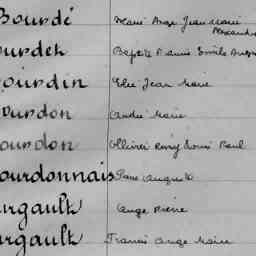 Bourdé Marie Ange Jean Marie
Alexandre
ourdet Baptiste Emile
ourdin Elie Jean Marie
ourdon André Marie
ourdon Ollivier Rémy Louis Paul
ourdonnais Pierre Auguste
urgault Ange Pierre
urgault Francis Ange Marie